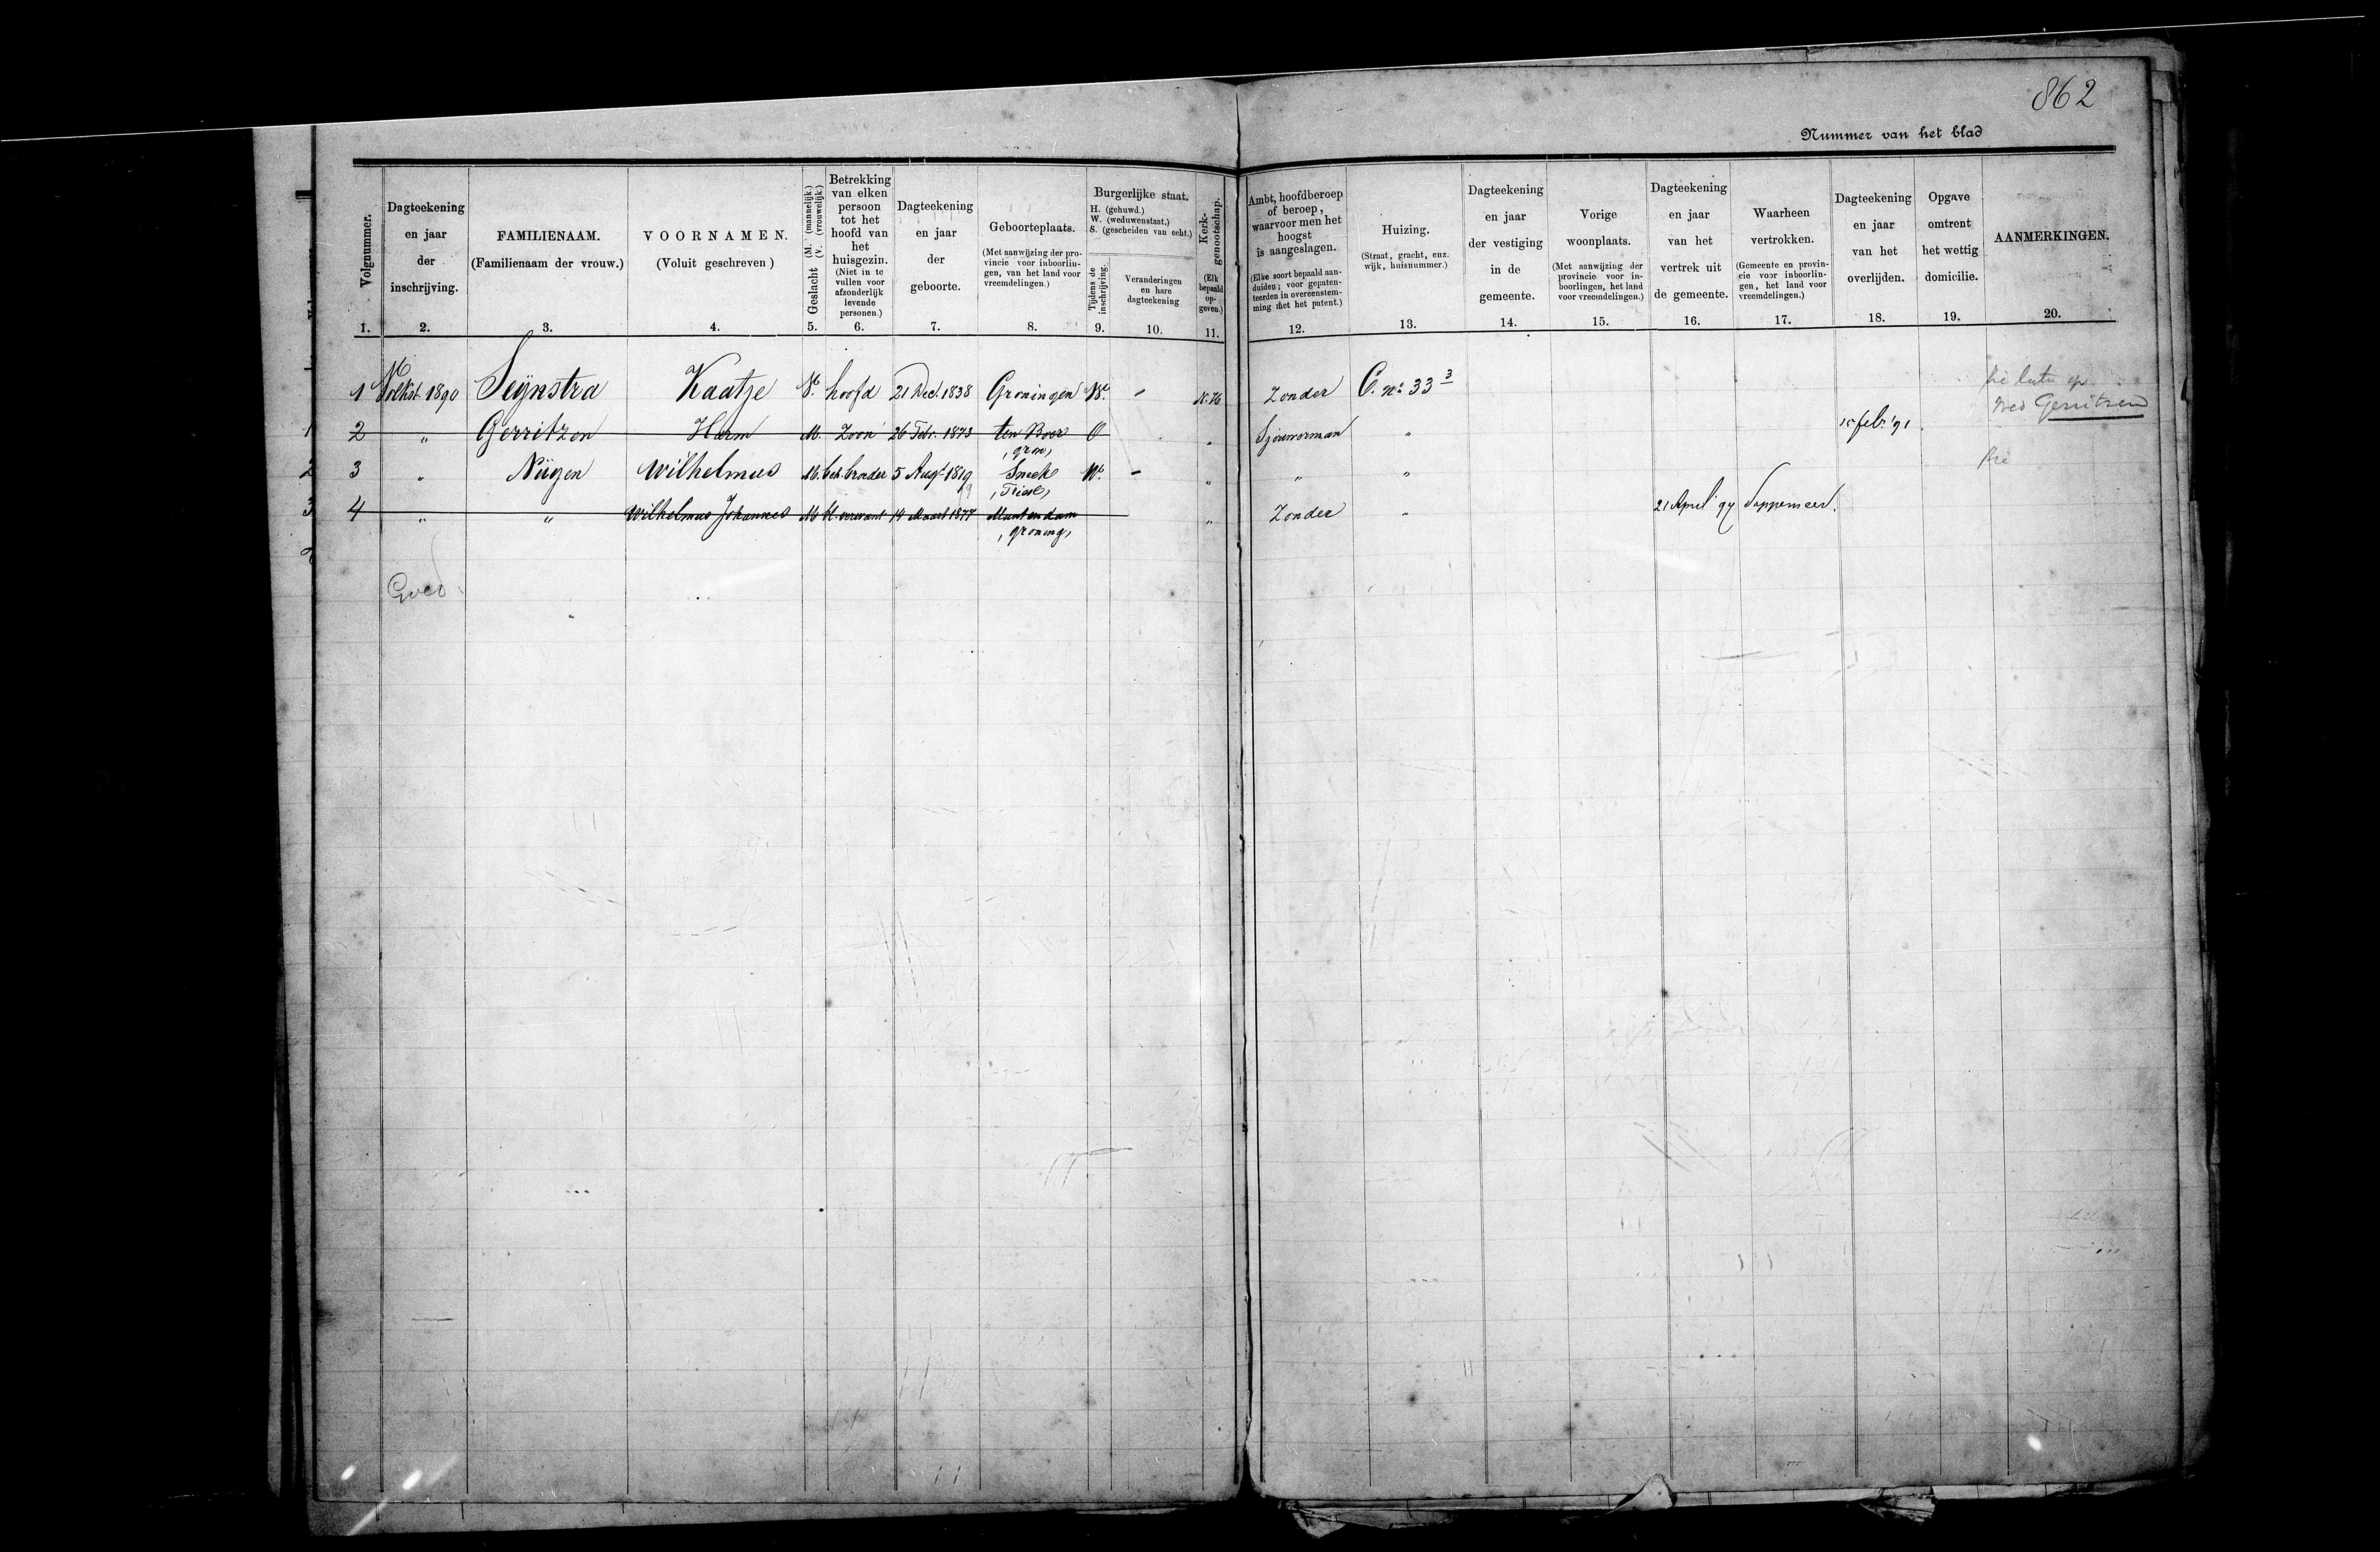 862
Nummer van het blad
Volgnummer.
1.
Dagteekening
en jaar
der
inschrijving.
2.
FAMILIENAAM.
(Familienaam der vrouw.)
3.
VOORNAMEN.
(Voluit geschreven)
4.
Geslacht (M. (mannelijk.) (V. (vrouwelijk.)
5.
Betrekking
van elken
persoon
tot het
hoofd van
het
huisgezin.
(Niet in te
vullen voor
afzonderlijk
levende
personen.)
6.
Dagteekening
en jaar
der
geboorte.
7.
Geboorteplaats.
(Met aanwijzing der pro-
vincie voor inboorlin-
gen, van het land voor
vreemdelingen.)
8.
Burgerlijke staat.
H. (gehuwd.)
W. (weduwenstaat.)
S. (gescheiden van echt.)
Tijdens de
inschrijving.
9.
Veranderingen
en hare
dagteekening
10.
Kerk-
genootschap.
(Elk
bepaald
op-
geven.)
11.
Ambt, hoofdberoep
of beroep,
waarvoor men het
hoogst
is aangeslagen.
(Elke soort bepaald aan-
duiden; voor gepaten-
teerden in overeenstem-
ming met het patent.)
12.
Huizing.
(Straat, gracht, enz.
wijk, huisnummer.)
13.
Dagteekening
en jaar
der vestiging
in de
gemeente.
14.
Vorige
woonplaats.
(Met aanwijzing der
provincie voor in-
boorlingen, het land
voor vreemdelingen.)
15.
Dagteekening
en jaar
van het
vertrek uit
de gemeente.
16.
Waarheen
vertrokken.
(Gemeente en provin-
cie voor inboorlin-
gen, het land voor
vreemdelingen.)
17.
Dagteekening
en jaar
van het
overlijden.
18.
Opgave
omtrent
het wettig
domicilie.
19.
AANMERKINGEN.
20.
1 Volkst. 1890 Seijnstra Kaatje V. hoofd 21 Dec. 1838 Groningen W. - N.H. Zonder C. no 33 3
Wed Gerritzen
2 " Gerritzen Harm M. Zoon 26 Febr. 1873 ten Boer O " Sjouwerman " 15 feb. '91
(gron)
3 " Nijzen Wilhelmus M. beh. broeder 5 Augt 1819 Sneek W. - " " "
(Friesl)
4 " " Wilhelmus Johannes M kl. verwant 14 Maart 1877 Muntendam " Zonder " 21 April 97 Sappemeer.
(groning)
Goed